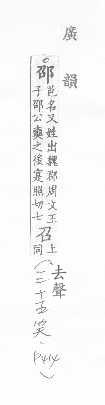 廣韻
○邵邑名又姓出魏郡周文王
子邵公奭之後寔照切七召上同
(去聲
三十五笑、P414)